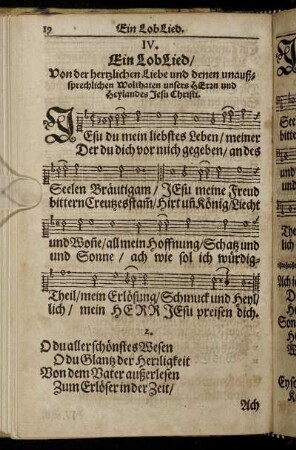 19 Ein LobLied.
IV.
Ein LobLied/
Von der hertzlichen Liebe und denen unauß-
sprechlichen Wolthaten unsers HErrn und
Heylandes Jesu Christi.
JEsu du mein liebstes Leben/ meiner
Der du dich vor mich gegeben/ an des
Seelen Bräutigam/ JEsu meine Freud
bittern Creutzesstam̃/ Hirt uñ König/ Liecht
und Woñe/ all mein Hoffnung/ Schatz und
und Sonne/ ach wie sol ich würdig-
Theil/ mein Erlösung/ Schmuck und Heyl/
lich/ mein HERR JEsu preisen dich.
2.
O du allerschönstes Wesen
O du Glantz der Herrligkeit
Von dem Vater außerlesen
Zum Erlöser in der Zeit/
Ach